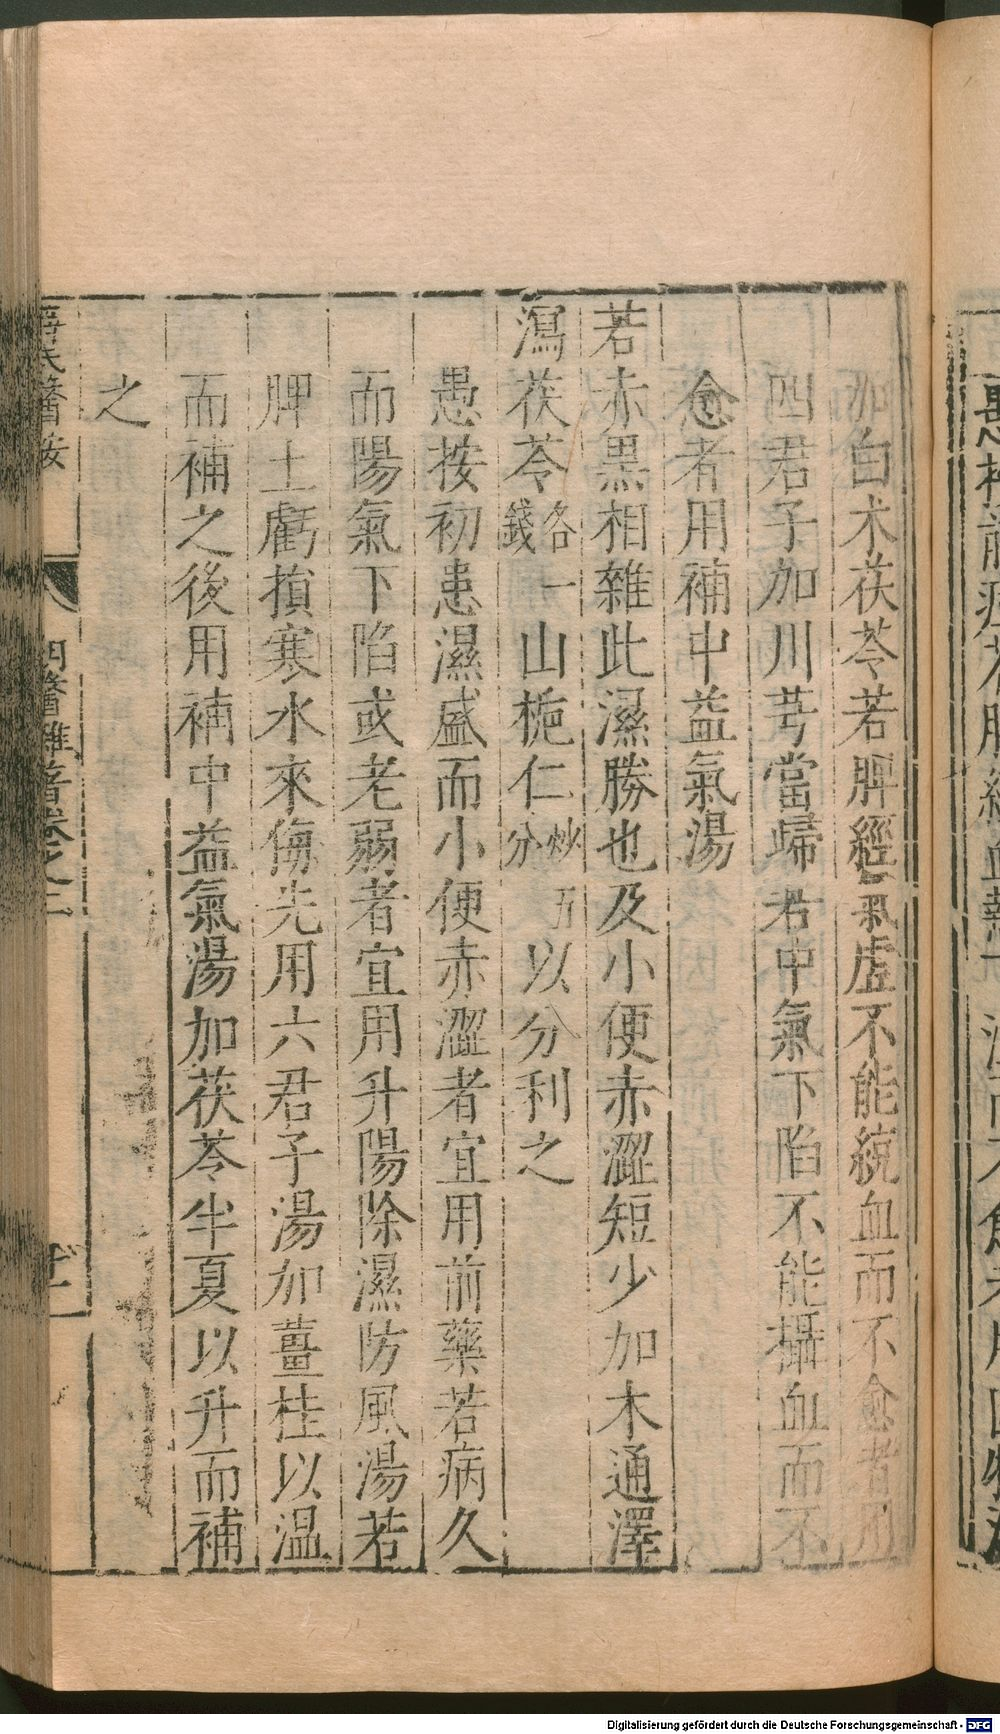 加白朮茯苓若脾經氣虛不能統血而不愈者用
四君子加川芎當歸若中氣下陷不能攝血而不
愈者用補中益氣湯
若赤黑相雜此濕勝也及小便赤澀短少加木通澤
瀉茯苓各一錢山梔仁炒五分以分利之
愚按初患濕盛而小便赤澀者宜用前藥若病久
而陽氣下陷或老弱者宜用升陽除濕防風湯若
脾土虧損寒水來侮先用六君子湯加薑桂以溫
而補之後用補中益氣湯加茯苓半夏以升而補
之
氏醫按
明醫雜著卷之二
Digitalisierung gefördert durch die Deutsche Forschungsgemeinschaft - DFG